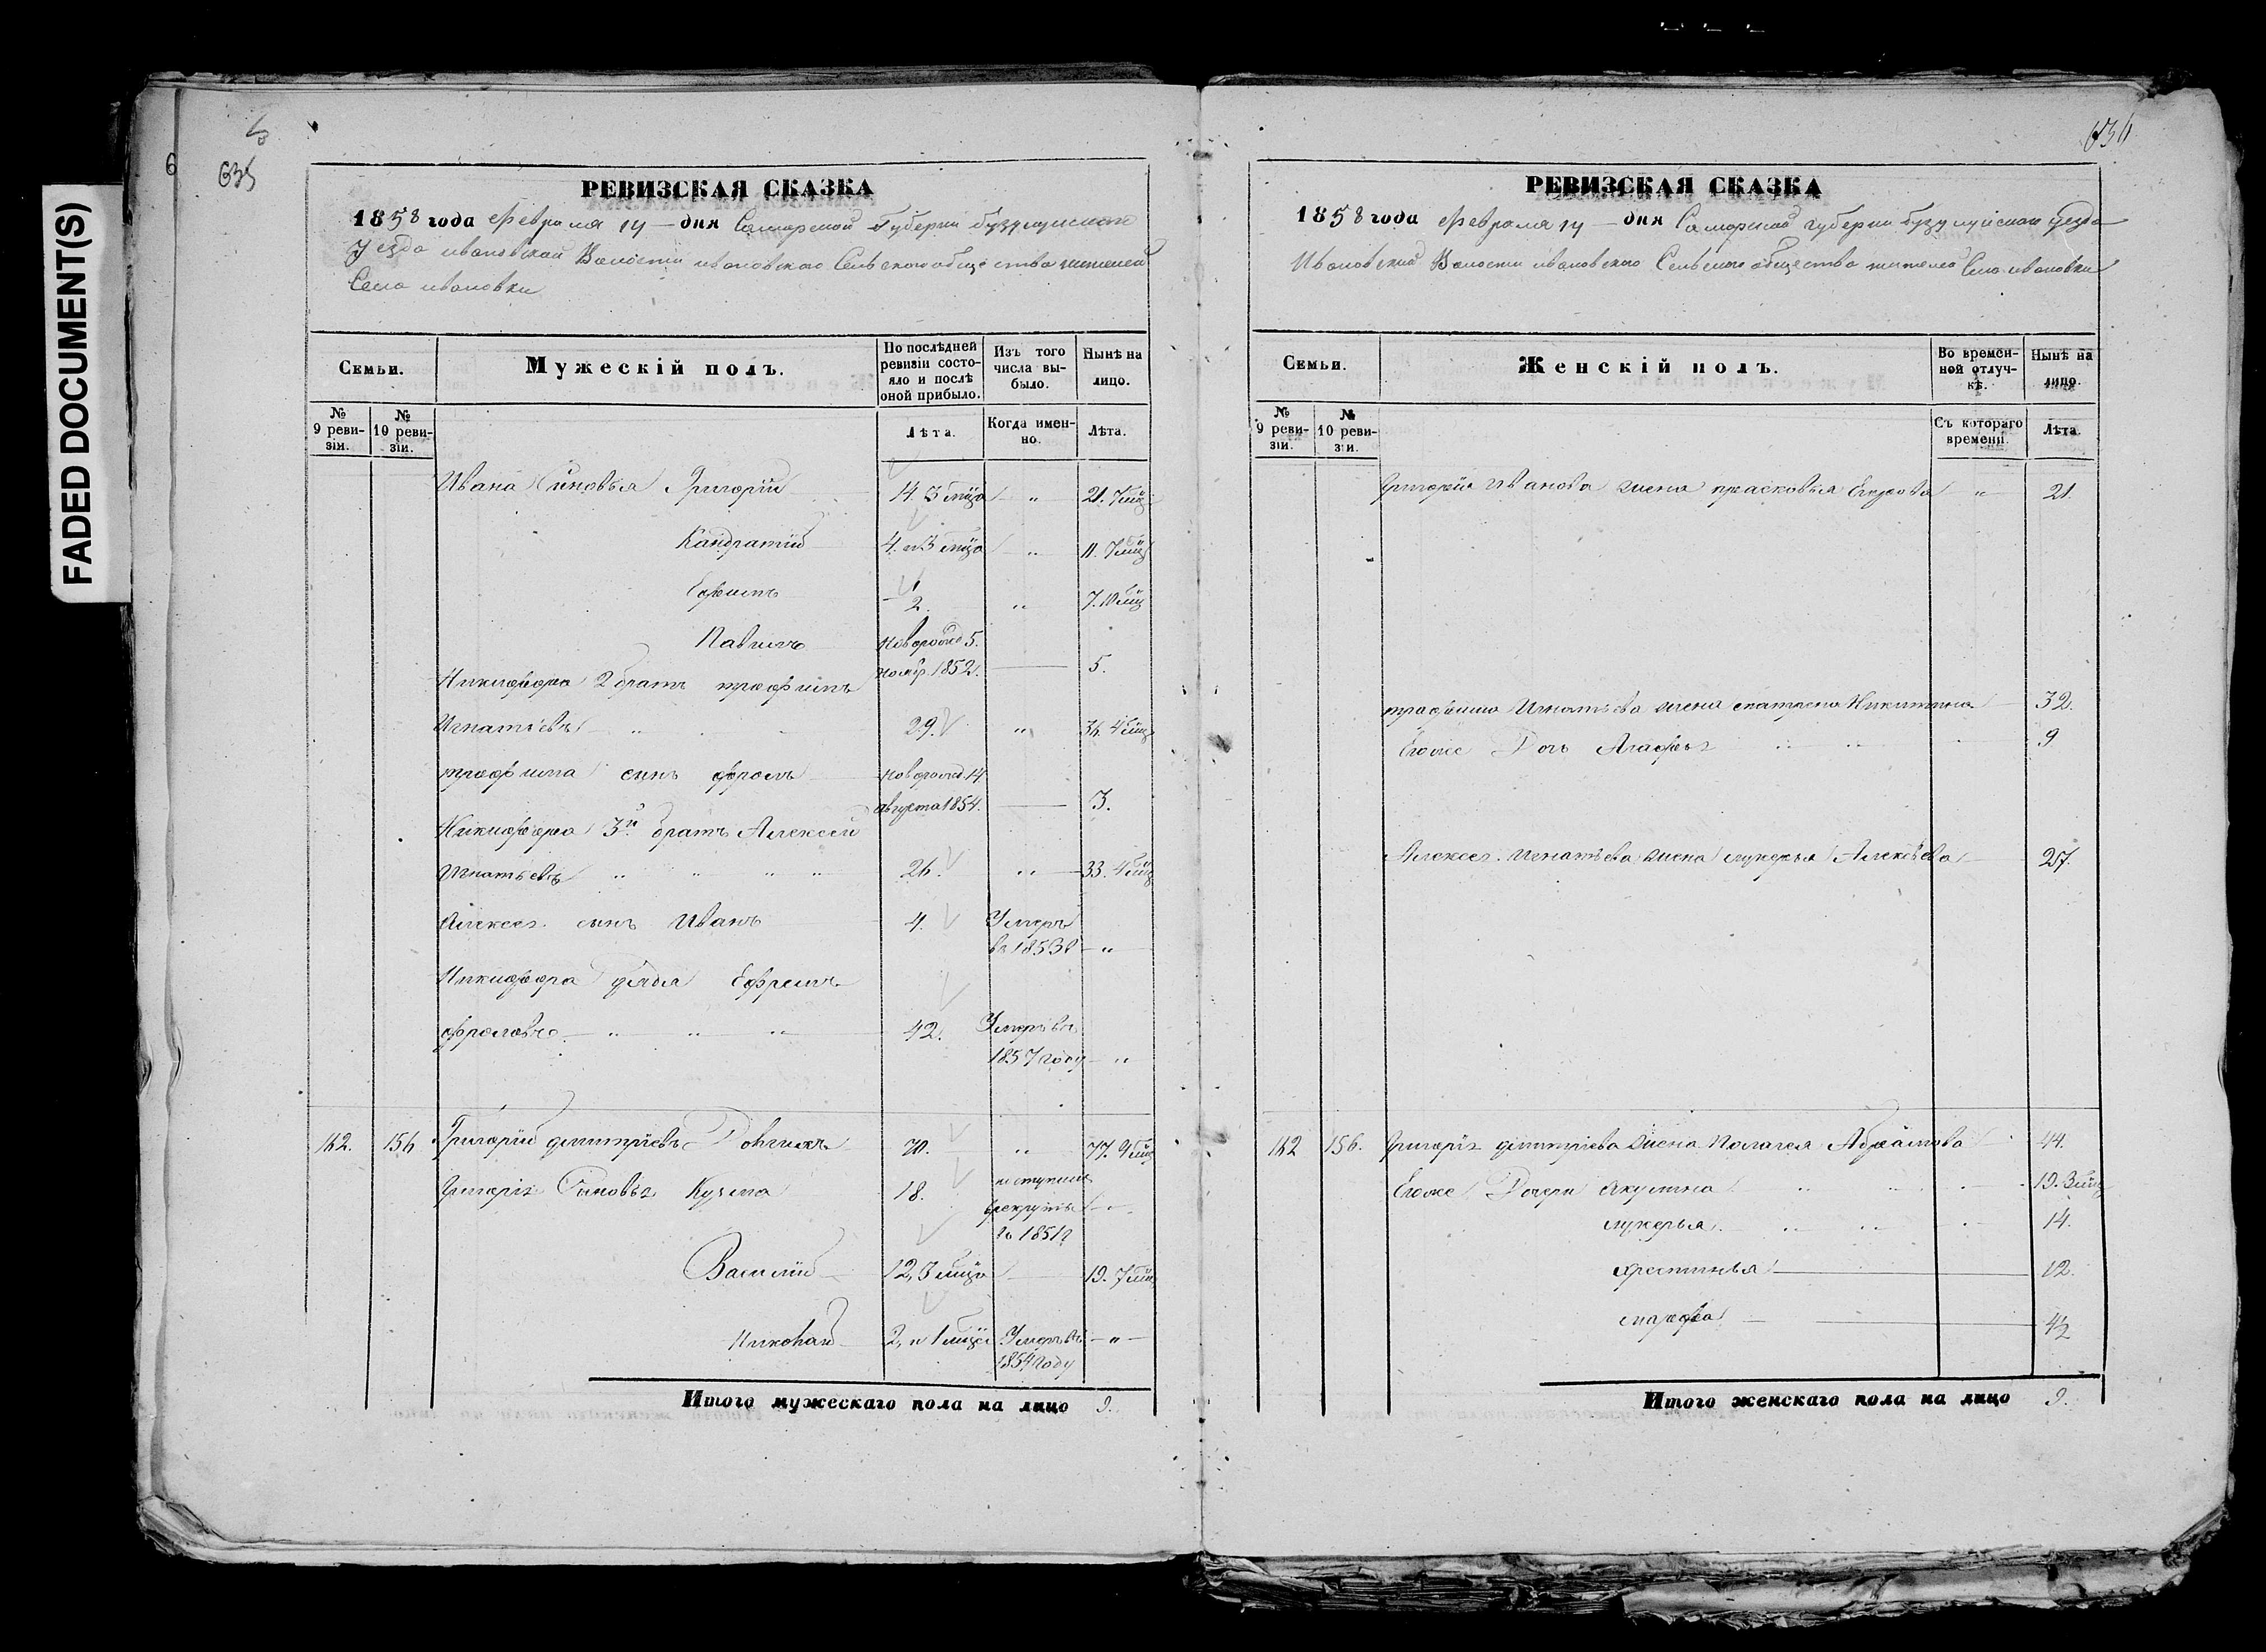 FADED DOCUMENT(S)
635
РЕВИЗСКАЯ СКАЗКА
1858 года Февраля 14 дня Самарской Губернии бузулуцскаго
Уезда ивановской Волости ивановскаго Сельскаго общества жителей
Села ивановки
Семьи.
Мужескій полъ.
По послѣдней ревизіи состояло и послѣ оной прибыло.
Изъ того числа выбыло.
Нынѣ на лицо.
№ 9 ревизіи.
№ 10 ревизіи.
Лѣта.
Когда именно.
Лѣта.
Ивана Сыновья Григорій 14. 3 мца " 21. 7 мц
Кандратій 4. и 3 мца " 11. 7 мц
Ефимъ ½. " 7. 10 мц
Павилъ новорожд 5. нояб. 1852. 5.
Никифора 2 братъ трофимъ
Игнатьевъ 29. " 36. 4 мц
трофима сынъ фролъ новорожд 14 августа 1854. 3.
Никифора 3й братъ Алексей
Игнатьевъ " " " " 26. " 33. 4 мц
Алексея сынъ Иванъ 4. Умеръ въ 1853 г "
Никифора дядя Ефремъ
фроловъ " " " 42. Умеръ въ 1857 году "
162. 156 Григорій дмитріевъ 70. " 77. 9 мц
Григорія Сыновья Кузма 18. поступилъ врекруты 1851 г
Василій 12, 3 мца 19. 7 мц
Николай 2, и 1 мца Умеръ въ 1854 году "
Итого мужескаго пола на лицо 9.
636
РЕВИЗСКАЯ СКАЗКА
1858 года Февраля 14 дня Самарской губернии бузулуйскаго уезда
Ивановской Волости ивановскаго Сельскаго общества жителей Села ивановки
Семьи.
Женскій полъ.
Во временной отлучкѣ.
Нынѣ на лицо.
№ 9 ревизіи.
№ 10 ревизіи.
Съ котораго времени.
Лѣта.
Григорія Иванова жена прасковья Егорова " 21.
трафима Игнатьева жена матрена Никитина 32.
Егоже Дочь Агафья 9
Алексея Игнатьева жена лукерья Алексѣева 27.
162 156. Григорія дмитріева жена Палагея Абрамова 44.
Егоже Дочери Акулина 19. 3 мц
лукерья 14.
хрестинья 12.
марфа ½
Итого женскаго пола на лицо 9.